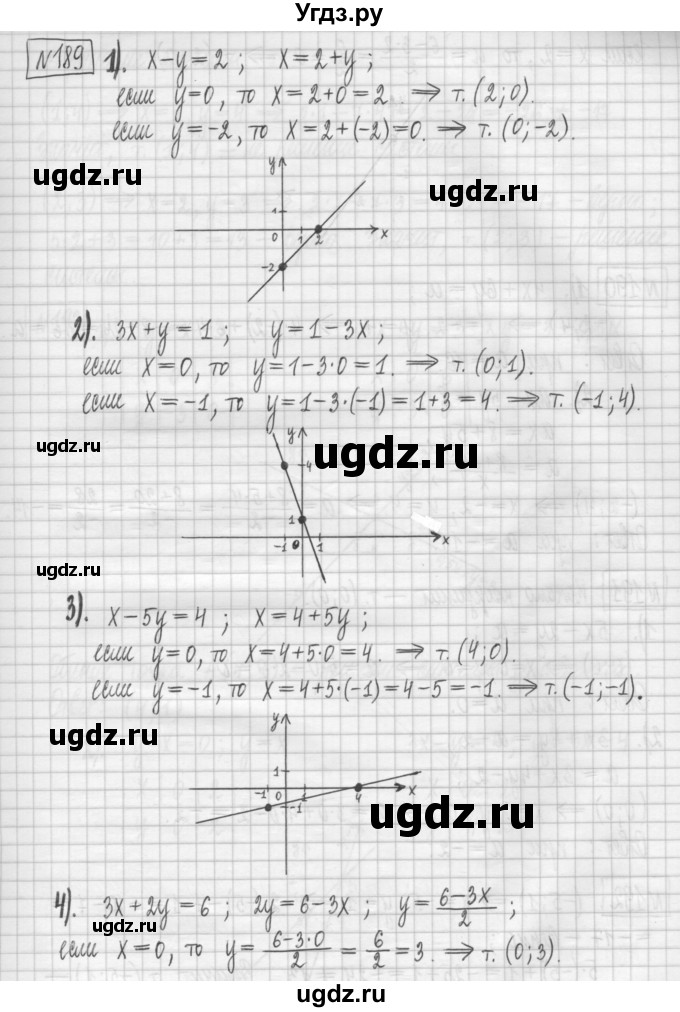 Угдз.ру
№189 1). x−y=2 ; x=2+y ;
если y=0, то x=2+0=2. ⟹ т. (2;0).
если y=−2, то x=2+(−2)=0. ⟹ т. (0;−2).
ugdz.ru ugdz.ru
y
1
0 1 2 x
−2
2). 3x+y=1 ; y=1−3x ;
если x=0, то y=1−3·0=1. ⟹ т. (0;1).
если x=−1, то y=1−3·(−1)=1+3=4. ⟹ т. (−1;4).
y
ugdz.ru ugdz.ru
4
1
−1 0 1 x
ugdz.ru
3). x−5y=4 ; x=4+5y ;
если y=0, то x=4+5·0=4. ⟹ т. (4;0).
если y=−1, то x=4+5·(−1)=4−5=−1. ⟹ т. (−1;−1).
y
ugdz.ru
1
−1 0 1 4 x
−1
ugdz.ru
4). 3x+2y=6 ; 2y=6−3x ; y=(6−3x)/2 ;
ugdz.ru
если x=0, то y=(6−3·0)/2=6/2=3. ⟹ т. (0;3).
ugdz.ru
ugdz.ru